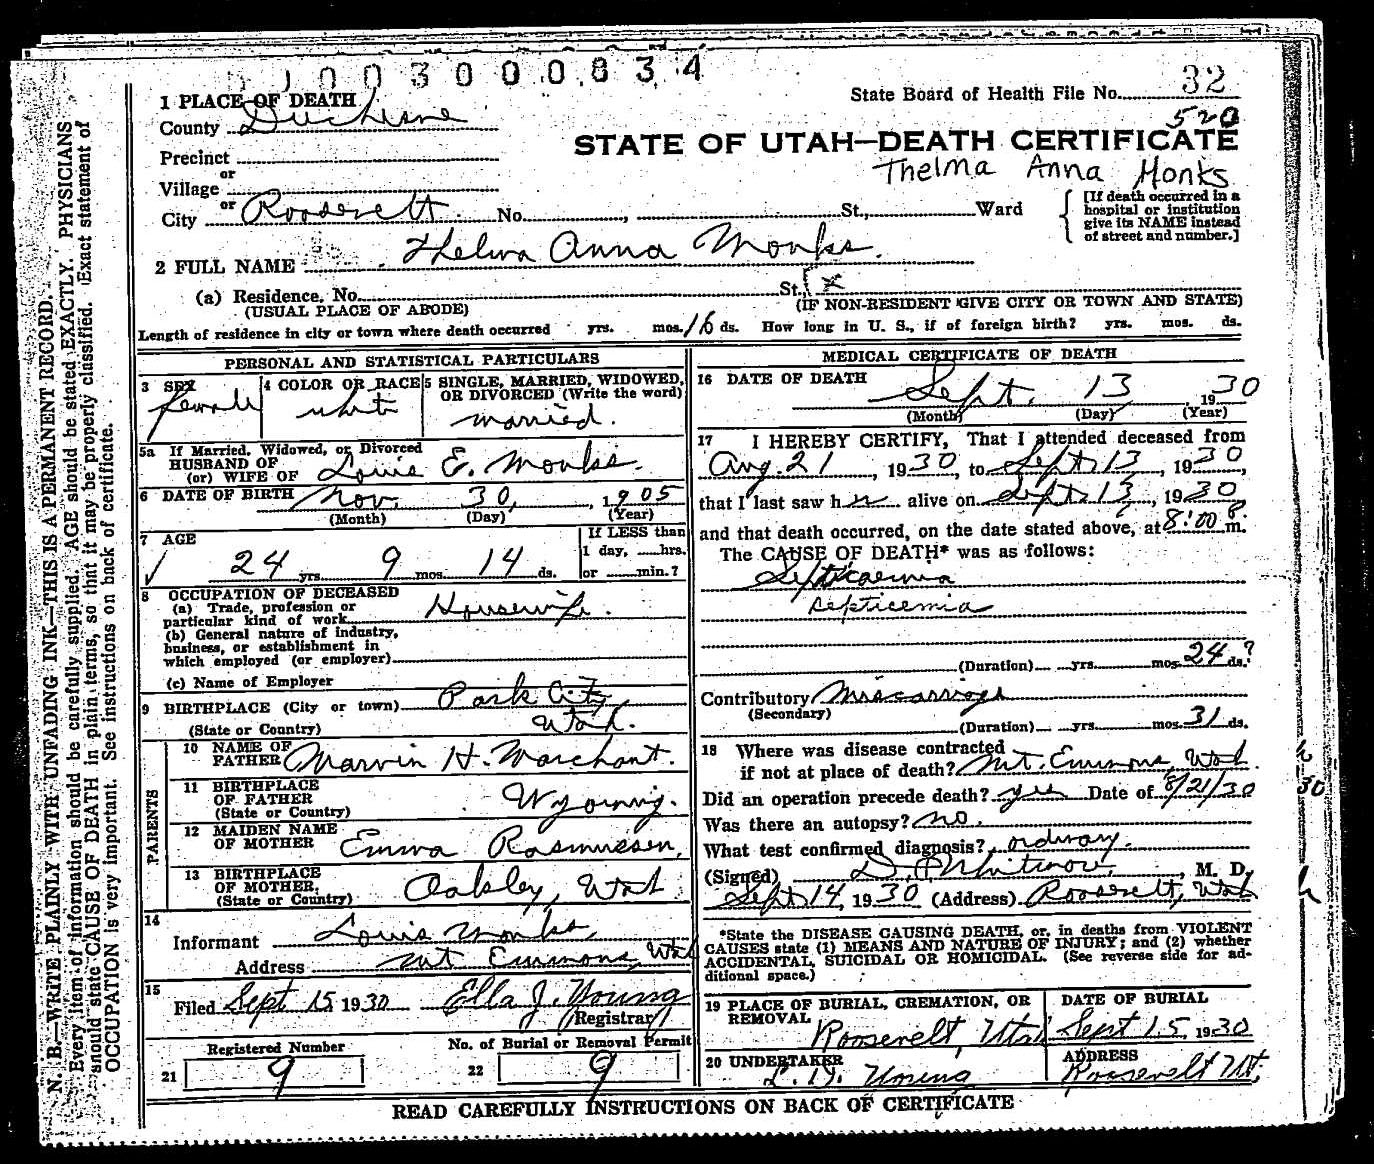 1003000834
State Board of Health File No. 32
520
1 PLACE OF DEATH
County Duchesne
STATE OF UTAH—DEATH CERTIFICATE
Thelma Anna Monks
Precinct
or
Village
or
City Roosevelt No. , St., Ward
[If death occurred in a
hospital or institution
give its NAME instead
of street and number.]
2 FULL NAME Thelma Anna Monks.
(a) Residence. No. St., x
(USUAL PLACE OF ABODE) (IF NON-RESIDENT GIVE CITY OR TOWN AND STATE)
Length of residence in city or town where death occurred yrs. mos. 16 ds. How long in U. S., if of foreign birth? yrs. mos. ds.
PERSONAL AND STATISTICAL PARTICULARS
3 SEX 4 COLOR OR RACE 5 SINGLE, MARRIED, WIDOWED,
OR DIVORCED (Write the word)
Female white married.
5a If Married, Widowed, or Divorced
HUSBAND OF
(or) WIFE OF Louis E. Monks.
6 DATE OF BIRTH Nov. 30, 1905
(Month) (Day) (Year)
7 AGE If LESS than
1 day, hrs.
24 yrs. 9 mos. 14 ds. or min.?
8 OCCUPATION OF DECEASED
(a) Trade, profession or
particular kind of work Housewife.
(b) General nature of industry,
business, or establishment in
which employed (or employer)
(c) Name of Employer
9 BIRTHPLACE (City or town) Park City
(State or Country) Utah.
PARENTS
10 NAME OF
FATHER Marvin H. Marchant.
11 BIRTHPLACE
OF FATHER
(State or Country) Wyoming.
12 MAIDEN NAME
OF MOTHER Emma Rasmussen,
13 BIRTHPLACE
OF MOTHER.
(State or Country) Oakley, Utah
14
Informant Louis Monks,
Address Mt Emmons, Utah
15
Filed Sept 15 1930 Ella J. Young
Registrar
Registered Number No. of Burial or Removal Permit
21 9 22 9
MEDICAL CERTIFICATE OF DEATH
16 DATE OF DEATH Sept. 13 1930
(Month) (Day) (Year)
17 I HEREBY CERTIFY, That I attended deceased from
Aug. 21, 1930, to Sept 13, 1930,
that I last saw her alive on Sept. 13, 1930,
and that death occurred, on the date stated above, at 8:00 P. m.
The CAUSE OF DEATH* was as follows:
Septicaemia
septicemia
(Duration) yrs. mos. 24 ds.?
Contributory Miscarriage
(Secondary)
(Duration) yrs. mos. 31 ds.
18 Where was disease contracted
if not at place of death? Mt. Emmons, Utah.
Did an operation precede death? yes Date of 8/21/30
Was there an autopsy? no.
What test confirmed diagnosis? ordinary.
(Signed) D. P. Whitmore, M. D.
Sept 14, 1930 (Address) Roosevelt, Utah
*State the DISEASE CAUSING DEATH, or, in deaths from VIOLENT
CAUSES state (1) MEANS AND NATURE OF INJURY; and (2) whether
ACCIDENTAL, SUICIDAL OR HOMICIDAL. (See reverse side for ad-
ditional space.)
19 PLACE OF BURIAL, CREMATION, OR
REMOVAL
Roosevelt, Utah
DATE OF BURIAL
Sept 15, 1930
20 UNDERTAKER
Young
ADDRESS
Roosevelt Ut.
READ CAREFULLY INSTRUCTIONS ON BACK OF CERTIFICATE
N. B.—WRITE PLAINLY WITH UNFADING INK—THIS IS A PERMANENT RECORD.
Every item of information should be carefully supplied. AGE should be stated EXACTLY. PHYSICIANS
should state CAUSE OF DEATH in plain terms, so that it may be properly classified. Exact statement of
OCCUPATION is very important. See instructions on back of certificate.
30